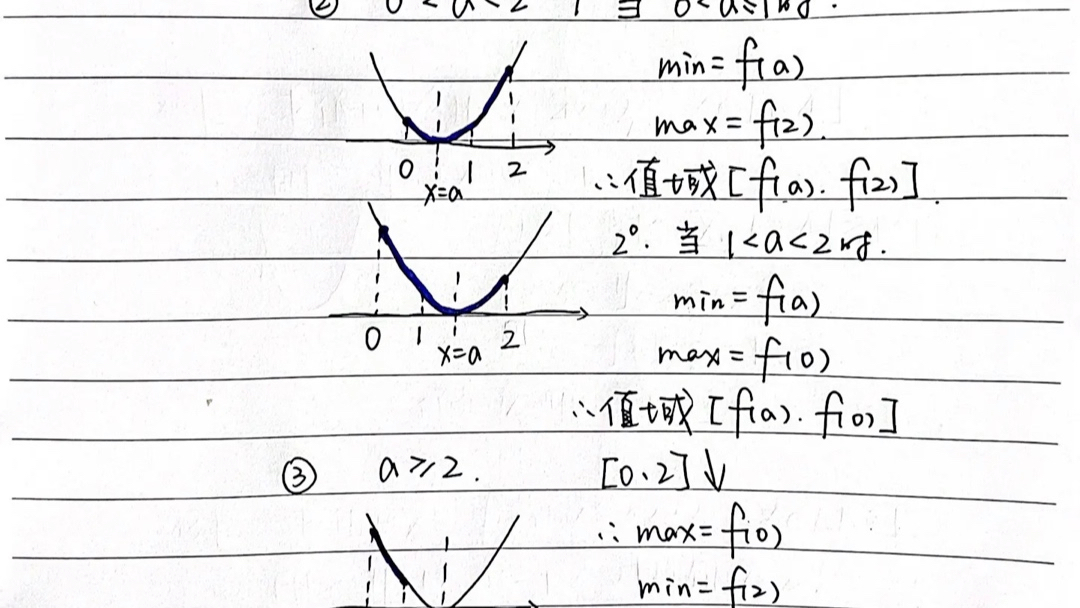 ② 0 < a < 2 1° 当 0<a≤1时.
min = f(a)
max = f(2).
0 1 2
x=a
∴值域[f(a). f(2)].
2°. 当 1<a<2时.
min = f(a)
0 1 2
x=a
max = f(0)
∴值域[f(a). f(0)]
③ a≥2. [0、2]↓
∴ max= f(0)
min= f(2)